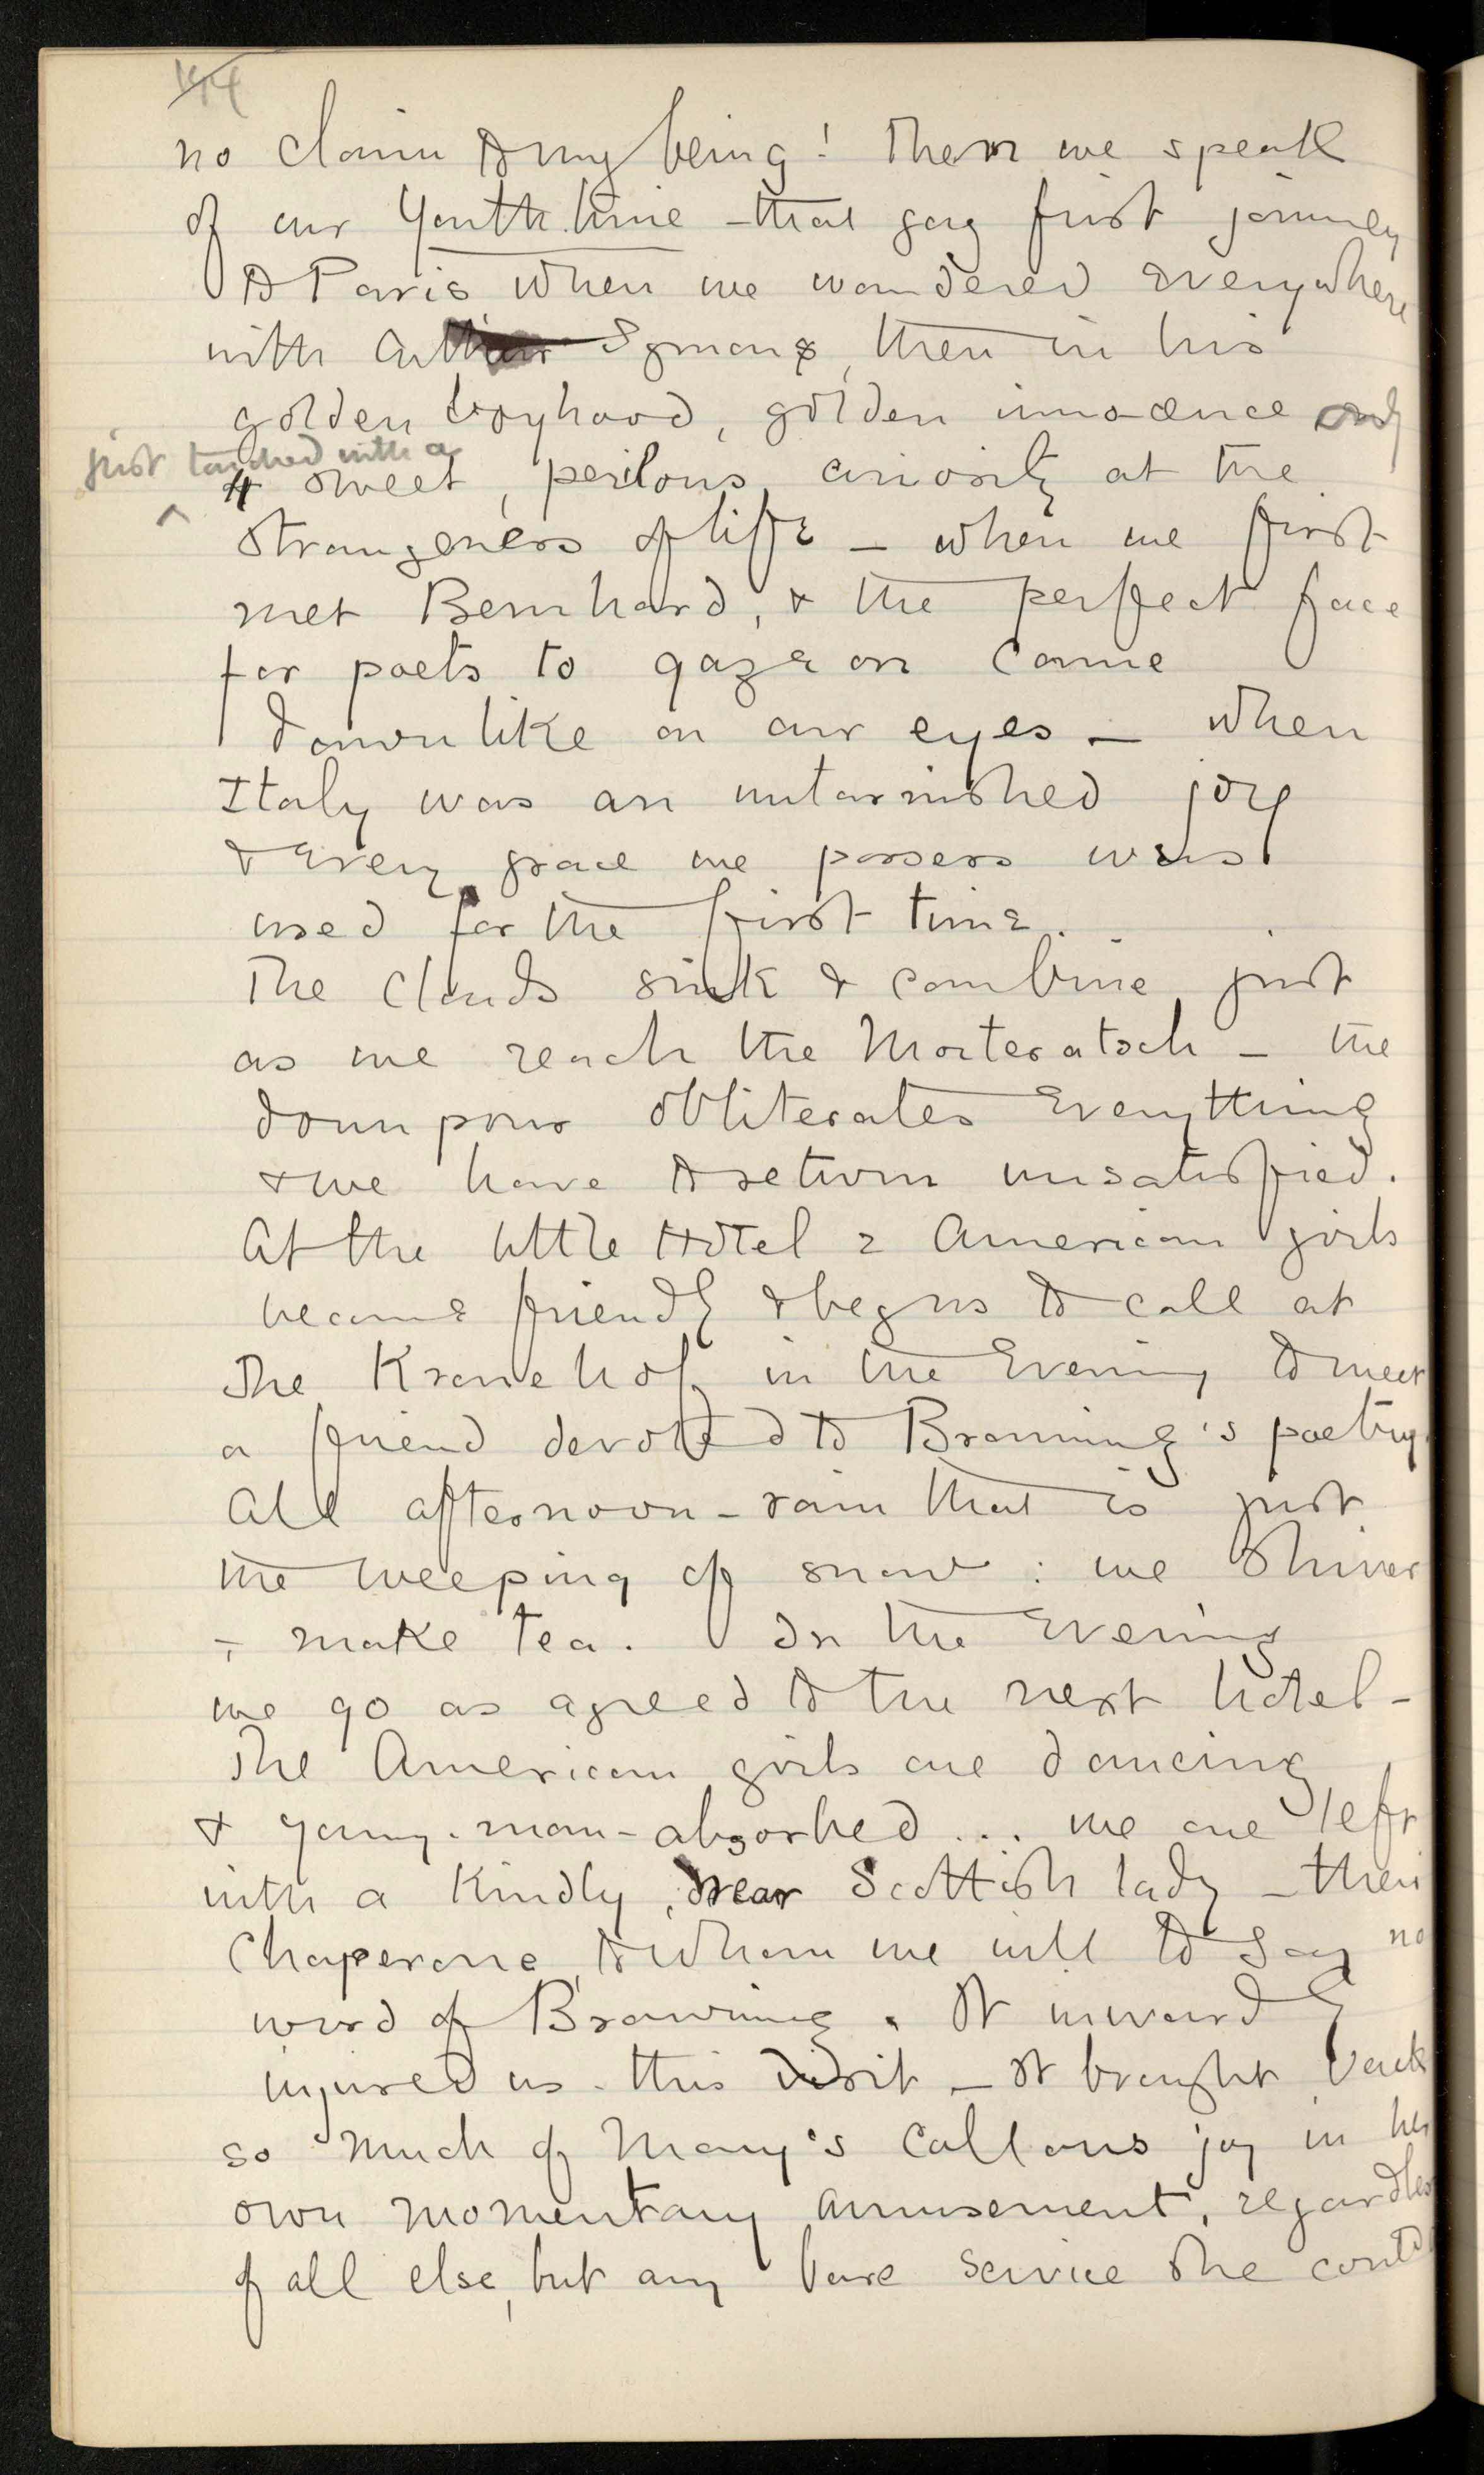 144
no claim to my being! Then we speak
of our Youth time - that gay first journey
to Paris when we wandered everywhere
with Arthur Symons, then in his
golden boyhood, golden innocence only
just touched with a
& sweet, perilous, curiosity at the
strangeness of life — when we first
met Bernhard, & the perfect face
for poets to gaze on came
dawnlike on our eyes — when
Italy was an untarnished joy
& every grace we possess was
used for the first time.
The clouds sink & combine just
as we reach the Morteratsch — the
downpour obliterates everything
& we have to return unsatisfied.
At the little Hotel 2 American girls
become friendly & beg us to call at
the Kronehof in the Evening to meet
a friend devoted to Browning's poetry.
All afternoon - rain that is just
the weeping of snow: we shiver
& make tea. In the Evening
we go as agreed to the next hotel -
The American girls are dancing
& young-man-absorbed ... we are left
with a kindly, drear Scottish lady - their
Chaperone, to whom we will to say no
word of Browning. It inwardly
injured us - this visit — It brought back
so much of Mary's callous joy in her
own momentary amusement, regardless
of all else, but any base service she could